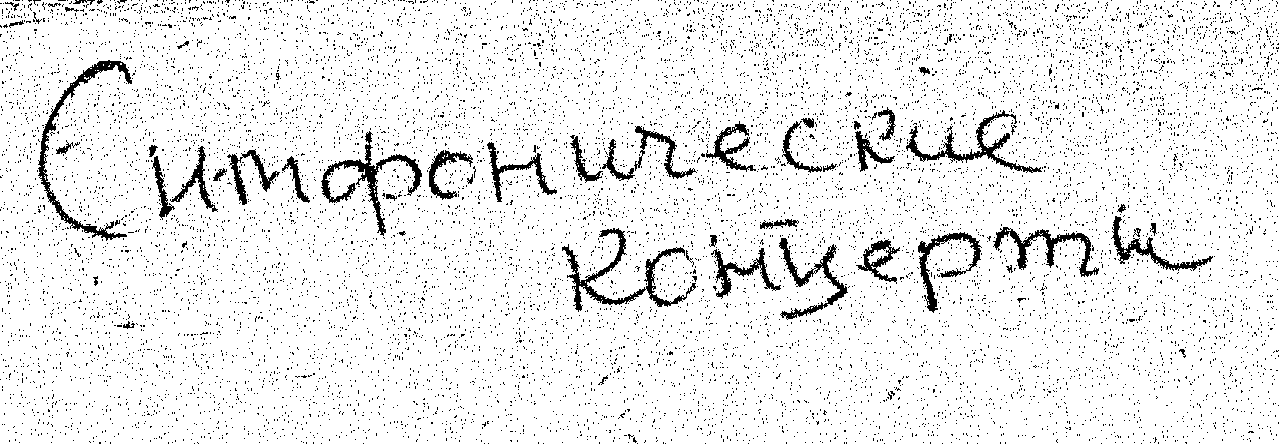 Симфонические
концерты